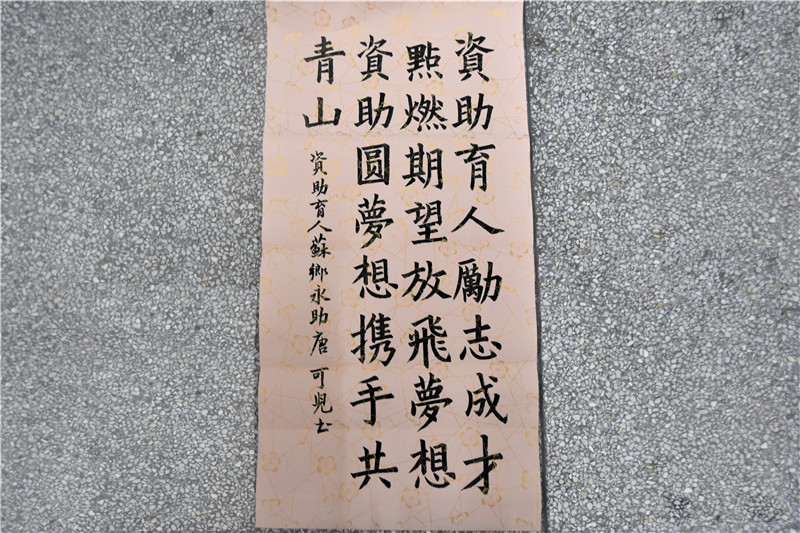 資助育人勵志成才
點燃期望放飛夢想
資助圆夢想携手共
青山
資助育人蘇鄉永助唐可兒書